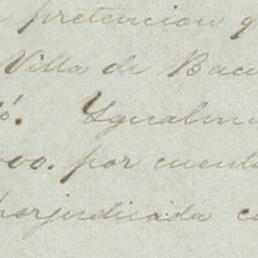 pretencion q
Villa de Bac
ó. Ygualm
00. por cuent
perjudicada c